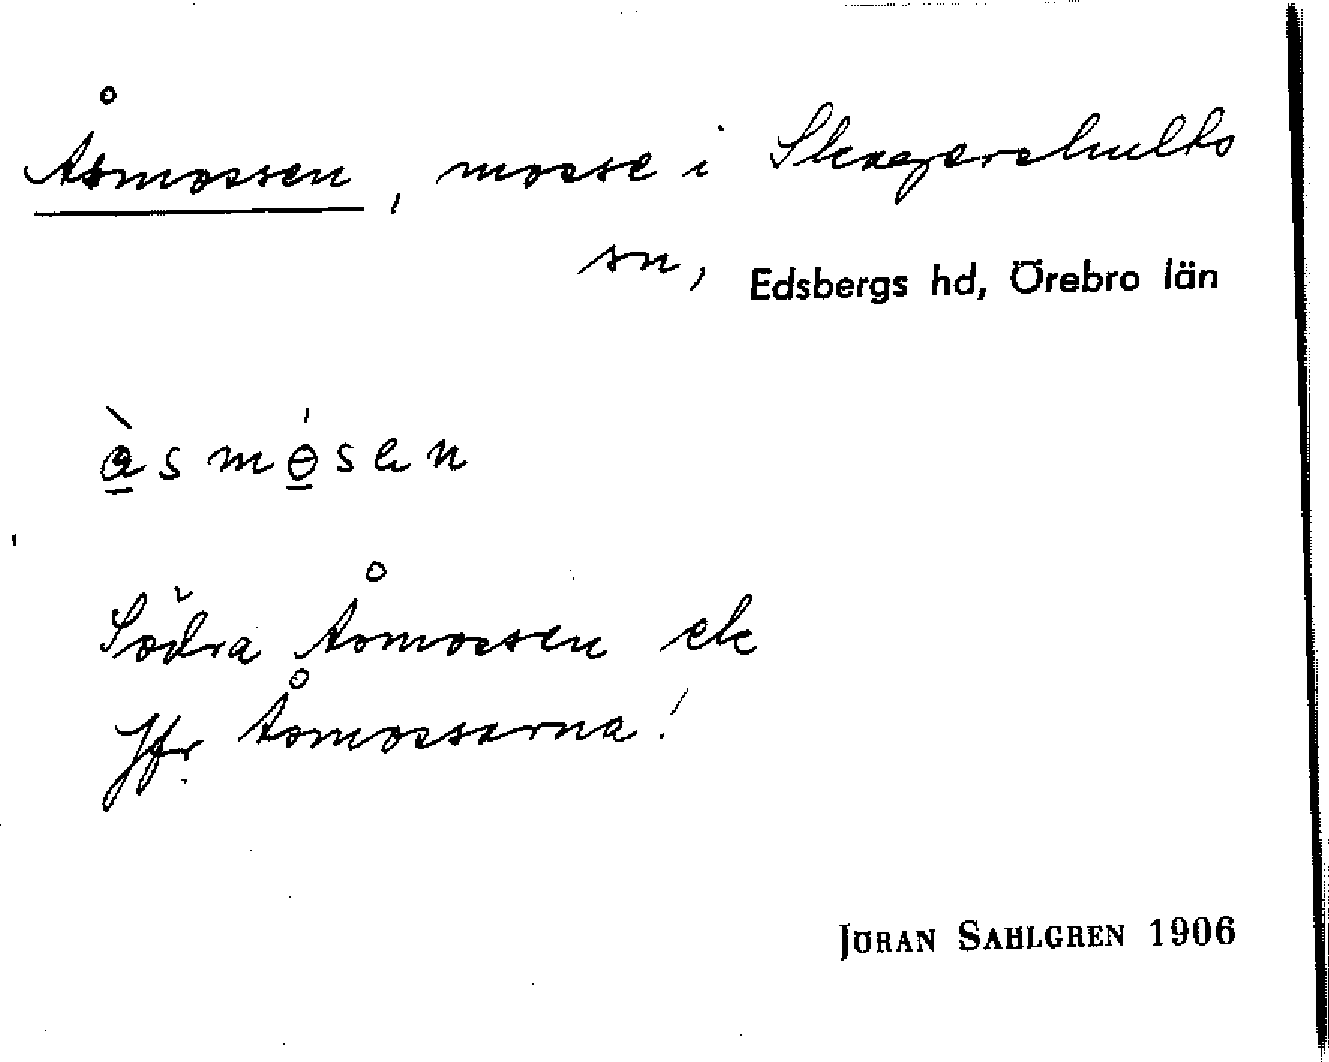 Åsmossen, mosse i Skagershults
sn, Edsbergs hd, Örebro län
åsmósen
Södra Åsmossen ek
Jfr Åsmossarna!
JÖRAN SAHLGREN 1906